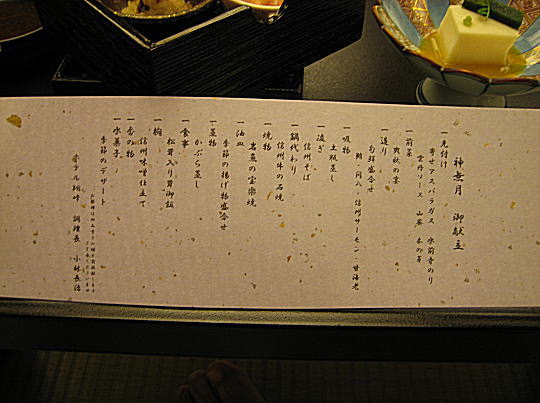 神無月　御献立
一 先付け
寄せアスパラガス　水前寺のり
雲丹ソース　山葵　木の芽
一 前菜
爽秋の宴
一 造り
旬鮮盛合せ
鮪　間八　信州サーモン　甘海老
一 吸物
土瓶蒸し
一 凌ぎ
信州そば
一 鍋代わり
信州牛の石焼
一 焼物
岩魚の宝楽焼
一 油皿
季節の揚げ物盛合せ
一 蒸物
かぶら蒸し
一 食事
松茸入り茸御飯
一 椀
信州味噌仕立て
一 香の物
一 水菓子
季節のデザート
ホテル翔峰　調理長　小林長治